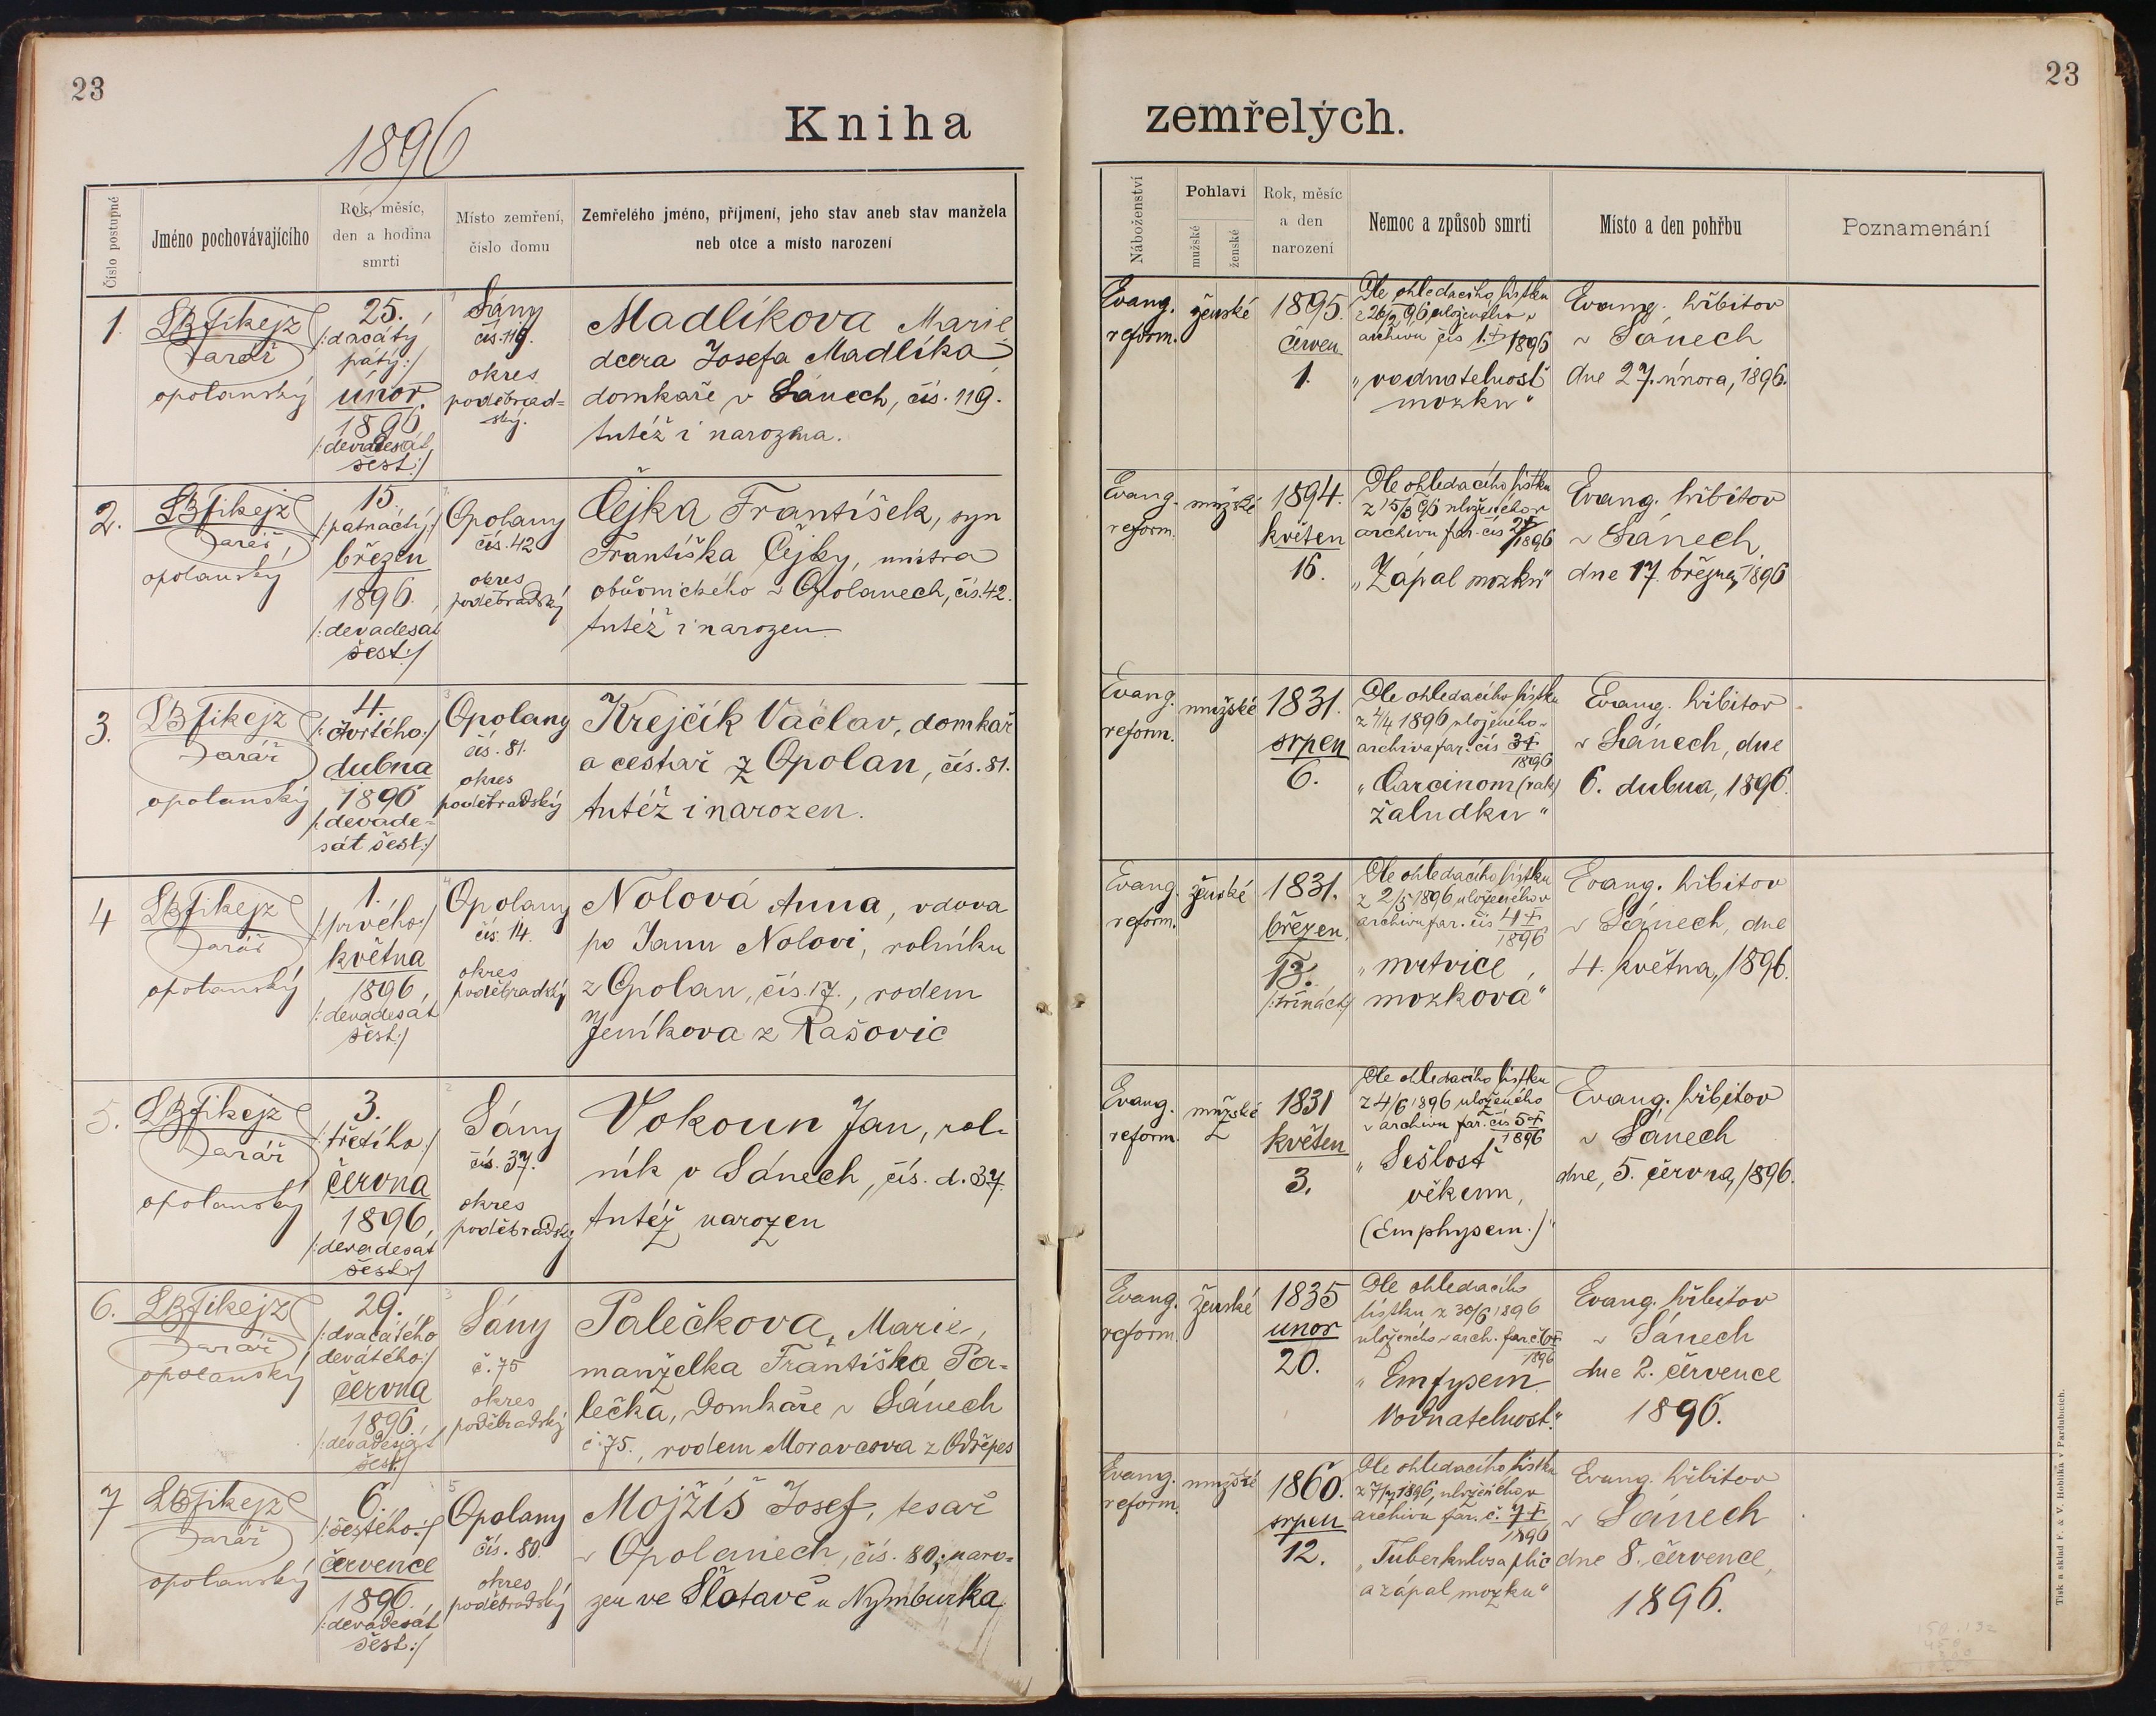 23
1896
Kniha
Číslo postupné
Jméno pochovávajícího
Rok, měsíc,
den a hodina
smrti
Místo zemření,
číslo domu
Zemřelého jméno, příjmení, jeho stav aneb stav manžela
neb otce a místo narození
1.
LBFikejz
farář
opolanský
25.
/:dvacátý
pátý:/
únor
1896
/:devadesát
šest:/
Sány
čís. 119.
okres
poděbrad=
ský.
Madlíkova Marie
dcera Josefa Madlíka,
domkaře v Sánech, čís. 119.
tutéž i narozena.
2.
LBFikejz
farář
opolanský
15.
/:patnáctý:/
březen
1896.
/:devadesát
šest:/
Opolany
čís. 42
okres
poděbradský
Čejka František, syn
Františka Čejky, mistra
obuvnického v Opolanech, čís. 42.
tutéž i narozen
3.
LBFikejz
farář
opolanský
4.
/:čtvrtého:/
dubna
1896
/:devade=
sát šest:/
Opolany
čís. 81.
okres
poděbradský
Krejčík Václav, domkař
a cestář z Opolan, čís. 81.
tutéž i narozen.
4
LBFikejz
farář
opolanský
1.
/:prvého:/
května
1896,
/:devadesát
šest:/
Opolany
čís. 14.
okres
poděbradský
Nolová Anna, vdova
po Janu Nolovi, rolníku
z Opolan, čís. 17., rodem
Jeníkova z Rašovic
5.
LBFikejz
farář
opolanský
3.
/:třetího:/
června
1896,
/:devadesát
šest:/
Sány
čís. 37.
okres
poděbradský
Vokoun Jan, rol-
ník v Sánech, čís. d. 37.
tutéž narozen
6.
LBFikejz
farář
opolanský
29.
/:dvacátého
devátého:/
června
1896,
/:devadesát
šest:/
Sány
č. 75
okres
poděbradský
Palečkova, Marie,
manželka Františka Pa-
lečka, domkáře v Sánech
č. 75., rodem Moravcova z Odřepes
7
LBFikejz
farář
opolanský
6.
/:šestého:/
července
1896.
/:devadesát
šest:/
Opolany
čís. 80.
okres
poděbradský
Mojžíš Josef, tesař
v Opolanech, čís. 80; naro-
zen ve Šlotavě u Nymburka
23
zemřelých.
Náboženství
Pohlaví
mužské
ženské
Rok, měsíc
a den
narození
Nemoc a způsob smrti
Místo a den pohřbu
Poznamenání
Evang.
reform.
ženské
1895.
červen
1.
Dle ohledacího lístku
z 26/2 96 uloženého v
archivu čís 1.+ 1896
"vodnatelnost
mozku"
Evang. hřbitov
v Sánech
dne 27. února, 1896.
Evang.
reform.
mužské
1894.
květen
16.
Dle ohledacího lístku
z 15/3 96 uloženého v
archivu far. čís 2+/1896
"Zápal mozku"
Evang. hřbitov
v Sánech,
dne 17. března, 1896
Evang.
reform.
mužské
1831.
srpen
6.
Dle ohledacího lístku
z 4/4 1896 uloženého v
archivu far. čís 3+
1896
"Carcinom (rak)
žaludku"
Evang. hřbitov
v Sánech, dne
6. dubna, 1896.
Evang.
reform.
ženské
1831.
březen,
13.
/:třináct:/
Dle ohledacího lístku
z 2/5 1896 uloženého v
archivu far. čís 4+
1896
"mrtvice
mozková"
Evang. hřbitov
v Sánech, dne
4. května, 1896.
Evang.
reform.
mužské
1831
květen
3.
Dle ohledacího lístku
z 4/6 1896 uloženého
v archivu far. čís 5+
1896
"Sešlost
věkem,
(Emphysem.)"
Evang. hřbitov
v Sánech
dne, 5. června, 1896.
Evang.
reform.
ženské
1835
unor
20.
Dle ohledacího
lístku z 30/6 1896
uloženého v arch. far č 6+
1896
"Emfysem.
Vodnatelnost."
Evang. hřbitov
v Sánech
dne 2. července
1896.
Evang.
reform.
mužské
1860.
srpen
12.
Dle ohledacího lístku
z 7/7 1896, uloženého v
archivu far. č. 7+
1896
"Tuberkulosa plic
a zápal mozku"
Evang. hřbitov
v Sánech
dne 8. července,
1896.
Tisk a sklad F. & V. Hoblíka v Pardubicích.